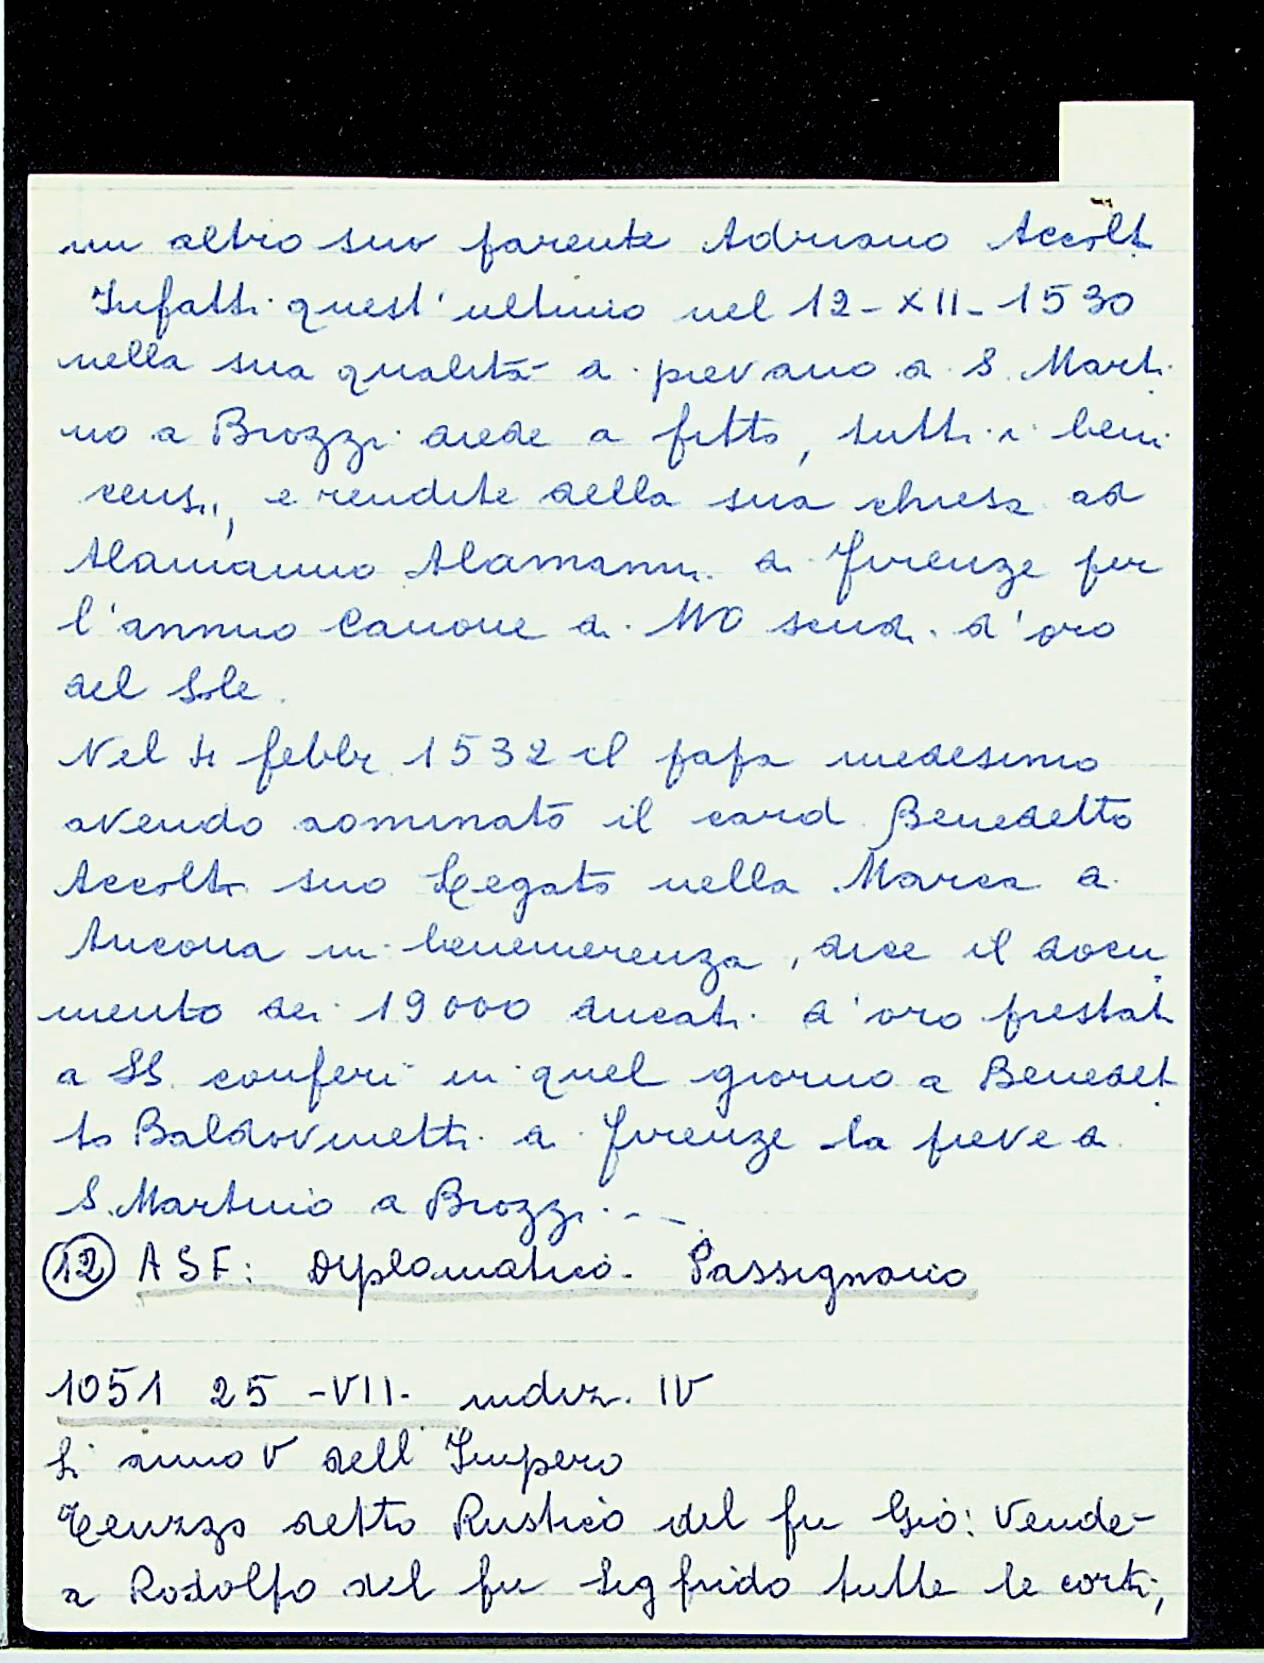 un altro suo parente Adriano Accolti
Infatti quest'ultimo nel 12-XII-1530
nella sua qualità di pievano di S. Marti
no a Brozzi diede a fitto, tutti i beni
censi, e rendite della sua chiesa ad
Alamanno Alamanni di Firenze per
l'annuo Canone di 110 scudi d'oro
del Sole.
Nel 4 febbr. 1532 il papa medesimo
avendo nominato il card. Benedetto
Accolti suo Legato nella Marca di
Ancona in benemerenza, dice il docu
mento dei 19000 ducati d'oro prestati
a SS. conferì in quel giorno a Benedet
to Baldovinetti di Firenze la pieve di
S. Martino a Brozzi. --
(12) ASF: Diplomatico. Passignano
1051 25 -VII- indiz. IV
L'anno V dell'Impero
detto Rustico del fu Gio: Vende-
a Rodolfo del fu Sigfrido tutte le corti,